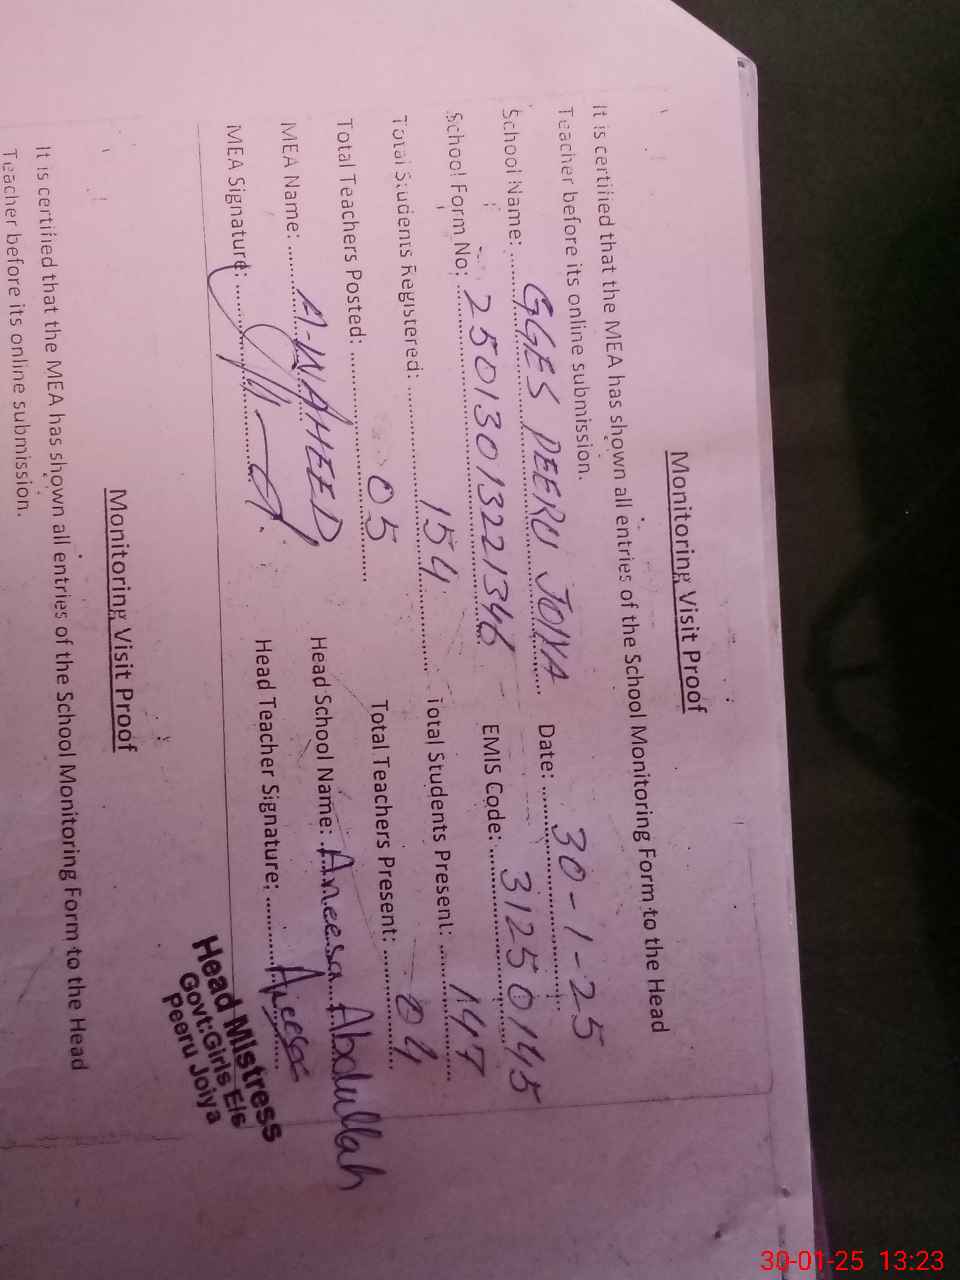 Monitoring Visit Proof
It is certified that the MEA has shown all entries of the School Monitoring Form to the Head
Teacher before its online submission.
School Name: GGES PEERU JOIYA Date: 30-1-25
School Form No: 25013013221346 EMIS Code: 31250145
Total Students Registered: 154 Total Students Present: 147
Total Teachers Posted: 05 Total Teachers Present: 04
MEA Name: A.WAHEED Head School Name: Aneesa Abdullah
MEA Signature: Head Teacher Signature: Aneesa
Head Mistress
Govt:Girls E/s
Peeru Joiya
Monitoring Visit Proof
It is certified that the MEA has shown all entries of the School Monitoring Form to the Head
Teacher before its online submission.
30-01-25 13:23